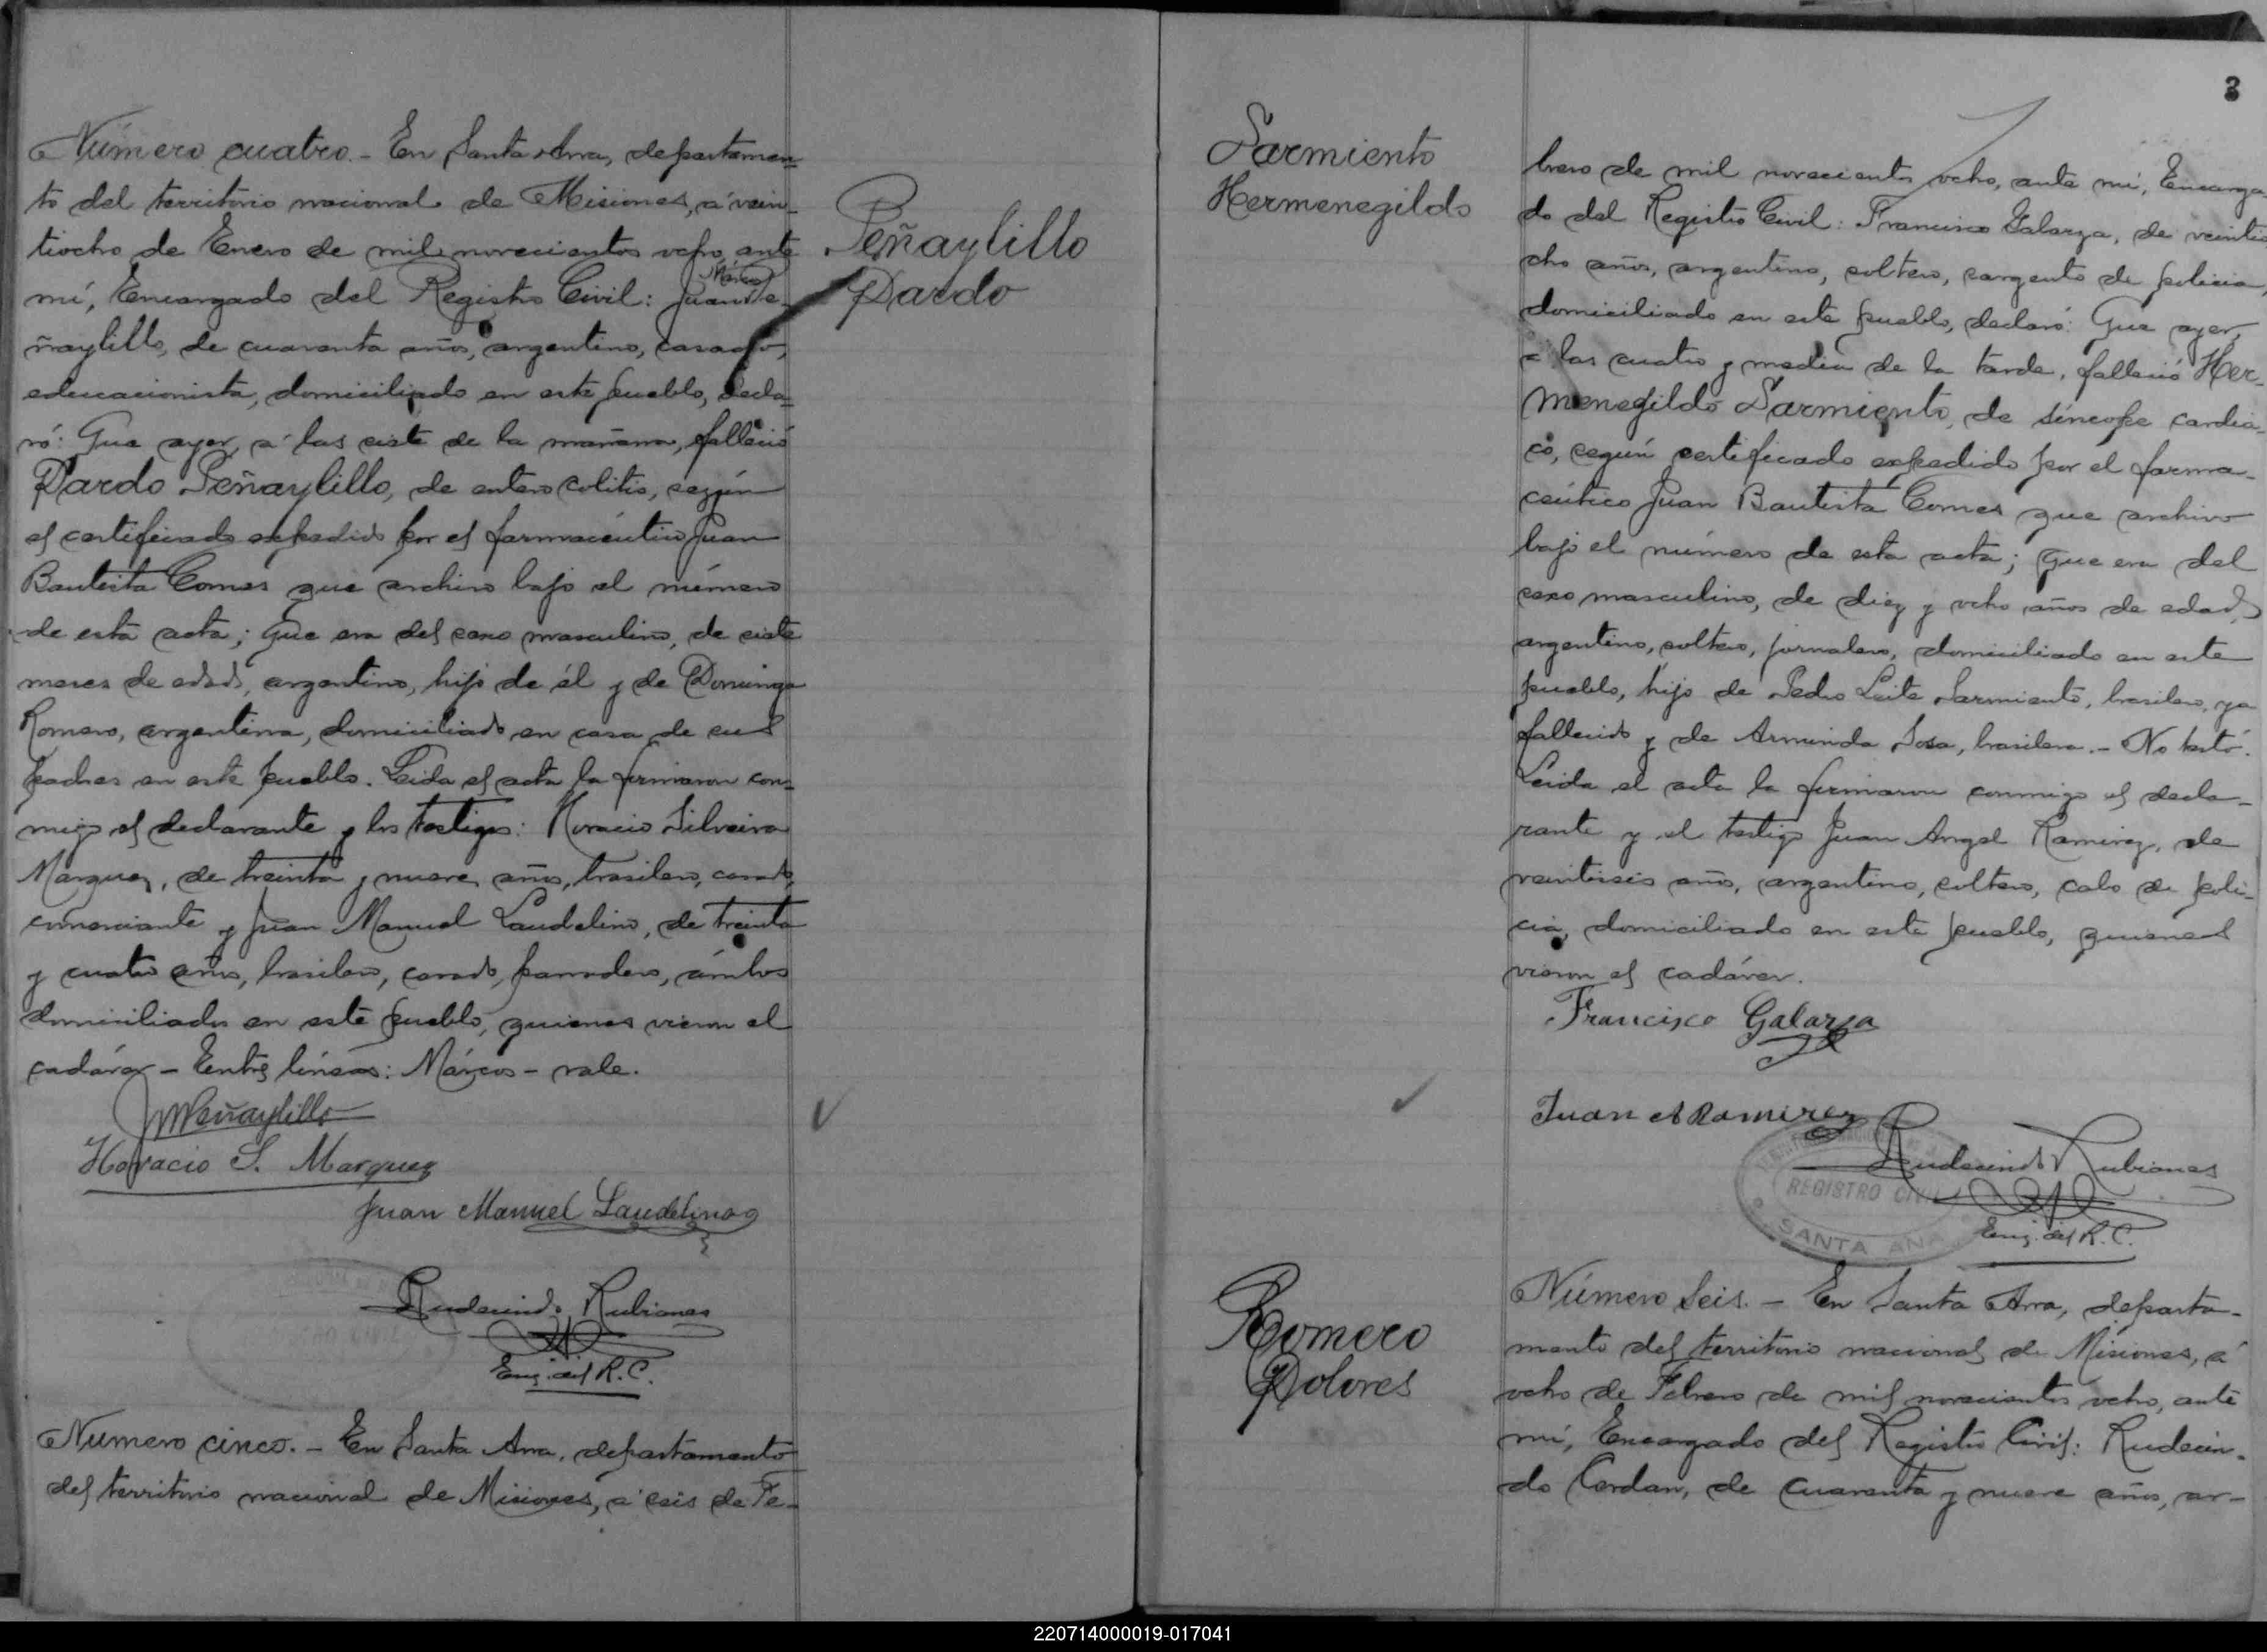 Número cuatro. - En Santa Ana, departamen-
to del territorio nacional de Misiones, á vein-
tiocho de Enero de mil novecientos ocho, ante
Márcos
mí, Encargado del Registro Civil: Juan Pe-
ñaylillo, de cuarenta años, argentino, casado,
educacionista, domiciliado en este pueblo, decla-
ró: Que ayer, á las siete de la mañana, falleció
Pardo Peñaylillo, de entero colitis, según
el certificado expedido por el farmacéutico Juan
Bautista Comes que archivo bajo el número
de esta acta; Que era del sexo masculino, de siete
meses de edad, argentino, hijo de él y de Dominga
Romero, argentina, domiciliado en casa de sus
padres en este pueblo. Leida el acta la firmaron con-
migo el declarante y los testigos: Horacio Silveira
Marquez, de treinta y nueve años, brasilero, casado,
comerciante y Juan Manuel Laudelino, de treinta
y cuatro años, brasilero, casado, panadero, ámbos
domiciliados en este pueblo, quienes vieron el
cadáver - Entre líneas: Márcos - vale.
JMPeñaylillo
Horacio S. Marquez
Juan Manuel Laudelino
Rudecindo Rubianes
Enc. del R. C.
Número cinco. - En Santa Ana, departamento
del territorio nacional de Misiones, á seis de Fe-
Peñaylillo
Pardo
3
Sarmiento
Hermenegildo
brero de mil novecientos ocho, ante mí, Encarga
do del Registro Civil: Francisco Galarza, de veintio
cho años, argentino, soltero, sargento de policia,
domiciliado en este pueblo, declaró: Que ayer,
á las cuatro y media de la tarde, falleció Her-
menegildo Sarmiento, de síncope cardia-
co, según certificado expedido por el farma-
céutico Juan Bautista Comes que archivo
bajo el número de esta acta; Que era del
sexo masculino, de diez y ocho años de edad,
argentino, soltero, jornalero, domiciliado en este
pueblo, hijo de Pedro Leite Sarmiento, brasilero, ya
fallecido y de Arminda Sosa, brasilera. - No testó.
Leida el acta la firmaron conmigo el decla-
rante y el testigo Juan Angel Ramirez, de
veintiseis años, argentino, soltero, cabo de poli-
cia, domiciliado en este pueblo, quienes
vieron el cadáver.
Francisco Galarza
Juan A Ramirez
Rudecindo Rubianes
REGISTRO CIVIL
SANTA ANA
Enc. del R. C.
Romero
Dolores
Número Seis. - En Santa Ana, departa-
mento del territorio nacional de Misiones, á
ocho de Febrero de mil novecientos ocho, ante
mí, Encargado del Registro Civil: Rudecin-
do Cerdan, de cuarenta y nueve años, ar-
220714000019-017041